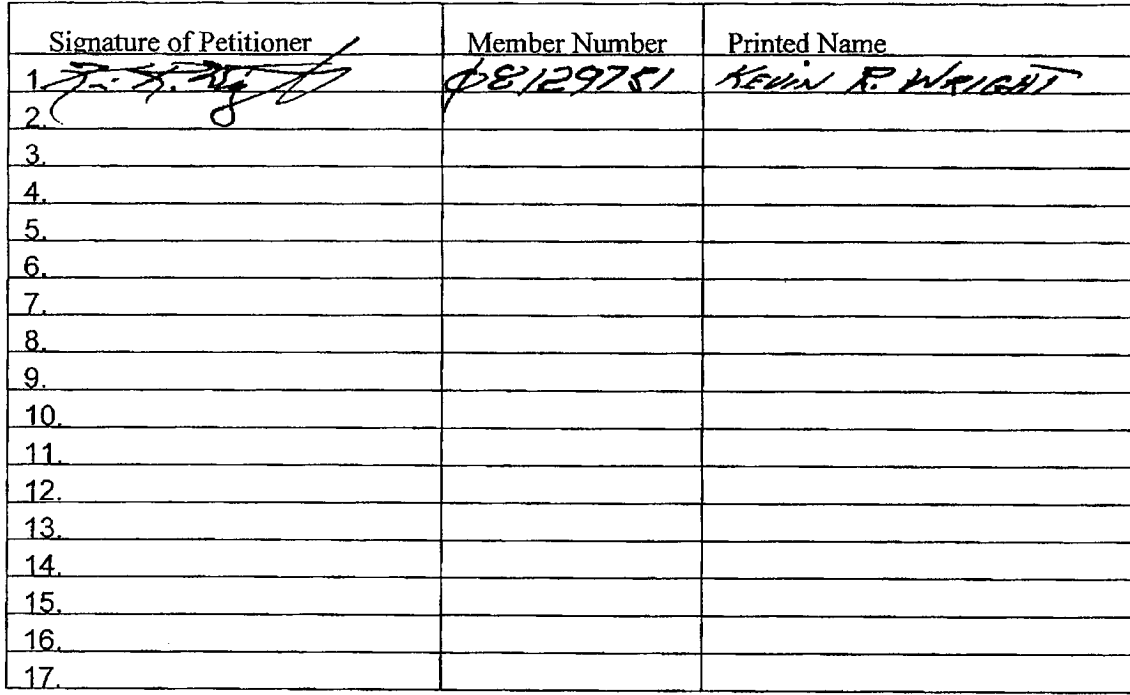 Signature of Petitioner Member Number Printed Name
1. 08129751 KEVIN R. WRIGHT
2.
3.
4.
5.
6.
7.
8.
9.
10.
11.
12.
13.
14.
15.
16.
17.